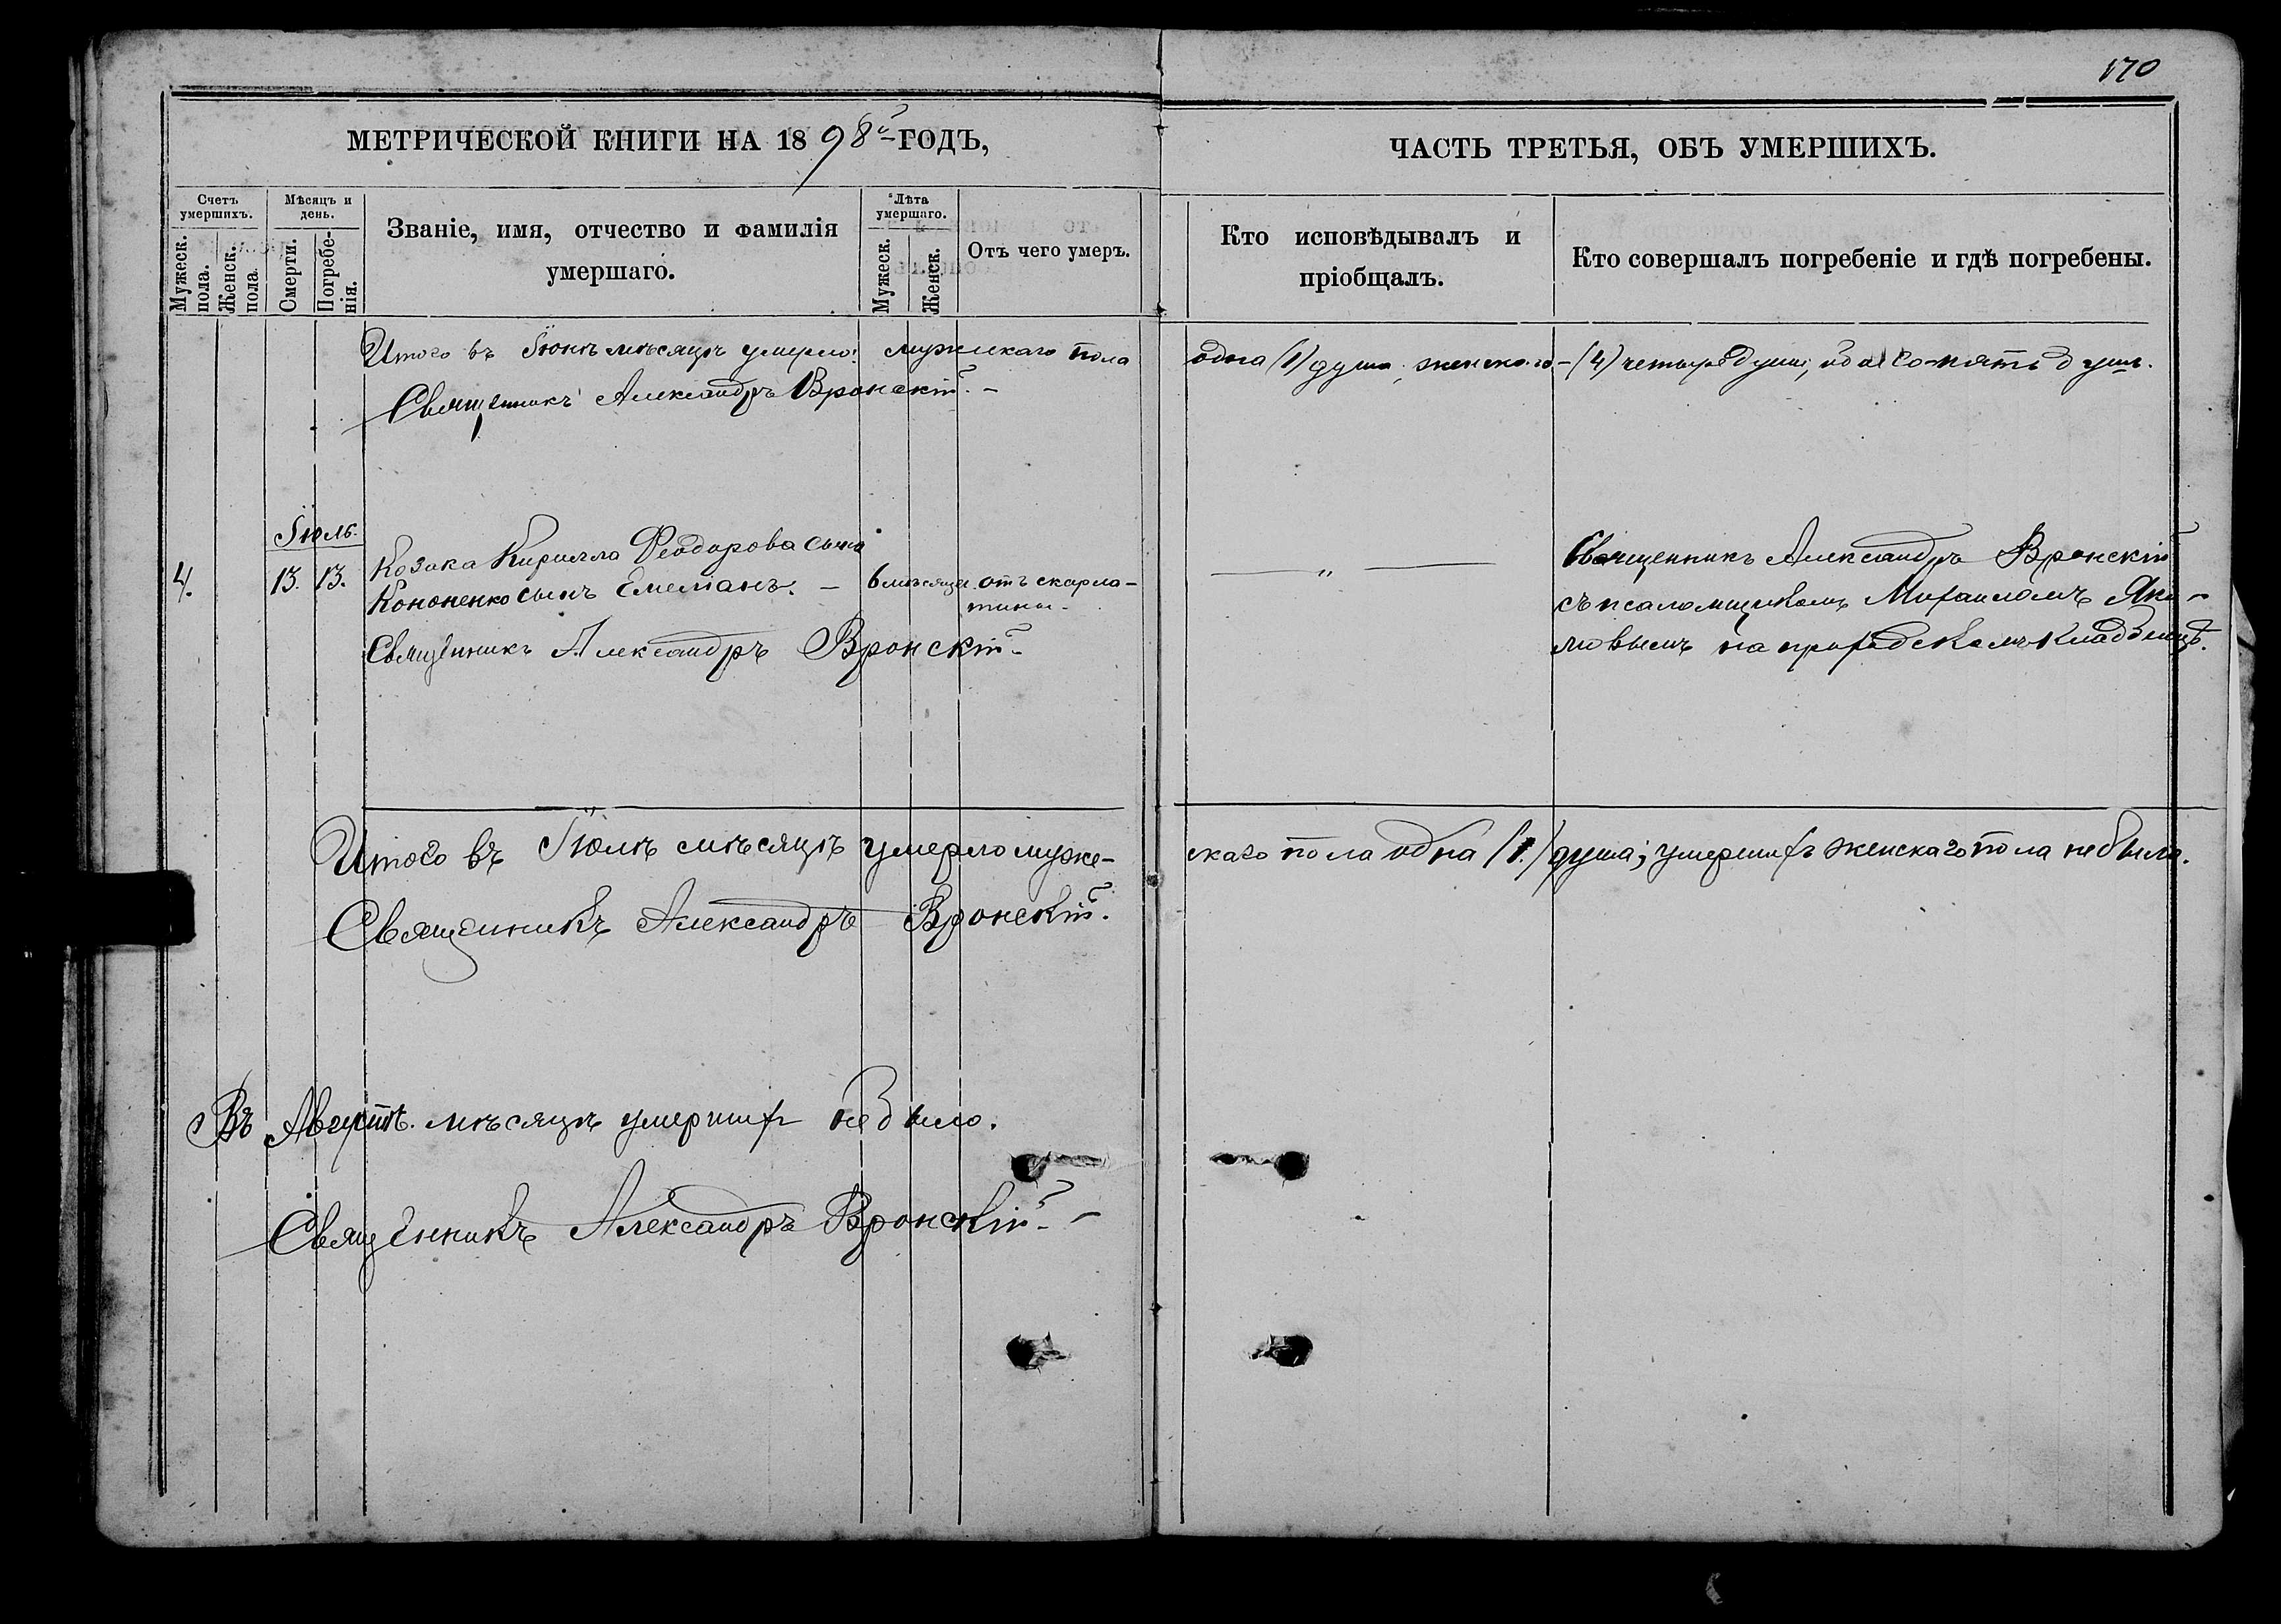 170
МЕТРИЧЕСКОЙ КНИГИ НА 1898й ГОДЪ,
ЧАСТЬ ТРЕТЬЯ, ОБЪ УМЕРШИХЪ.
Счетъ умершихъ.
Мужеск. пола.
Женск. пола.
Мѣсяцъ и день.
Смерти.
Погребенія.
Званіе, имя, отчество и фамилія
умершаго.
Лѣта умершаго.
Мужеск.
Женск.
Отъ чего умеръ.
Кто исповѣдывалъ и
пріобщалъ.
Кто совершалъ погребеніе и гдѣ погребены.
Итого въ Іюнѣ мѣсяцѣ умерло: мужескаго пола одна (1) душа, женскаго – (4) четыре души, обоего пять душъ.
Священникъ Александръ Вронскій. –
Іюль.
4. 13. 13.
Козака Кирилла Феодорова сына
Кононенко сынъ Емеліанъ. –
6 мѣсяцев
отъ скарла-
тины.
— „ —
Священникъ Александръ Вронскій
съ псаломщикомъ Михаиломъ Яки-
мовымъ на приходскомъ кладбищѣ.
Священникъ Александръ Вронскій
Итого въ Іюлѣ мѣсяцѣ умерло муже-
скаго пола одна (1.) душа; умершихъ женскаго пола не было.
Священникъ Александръ Вронскій.
Въ Августѣ. мѣсяцѣ умершихъ не было.
Священникъ Александръ Вронскій. –